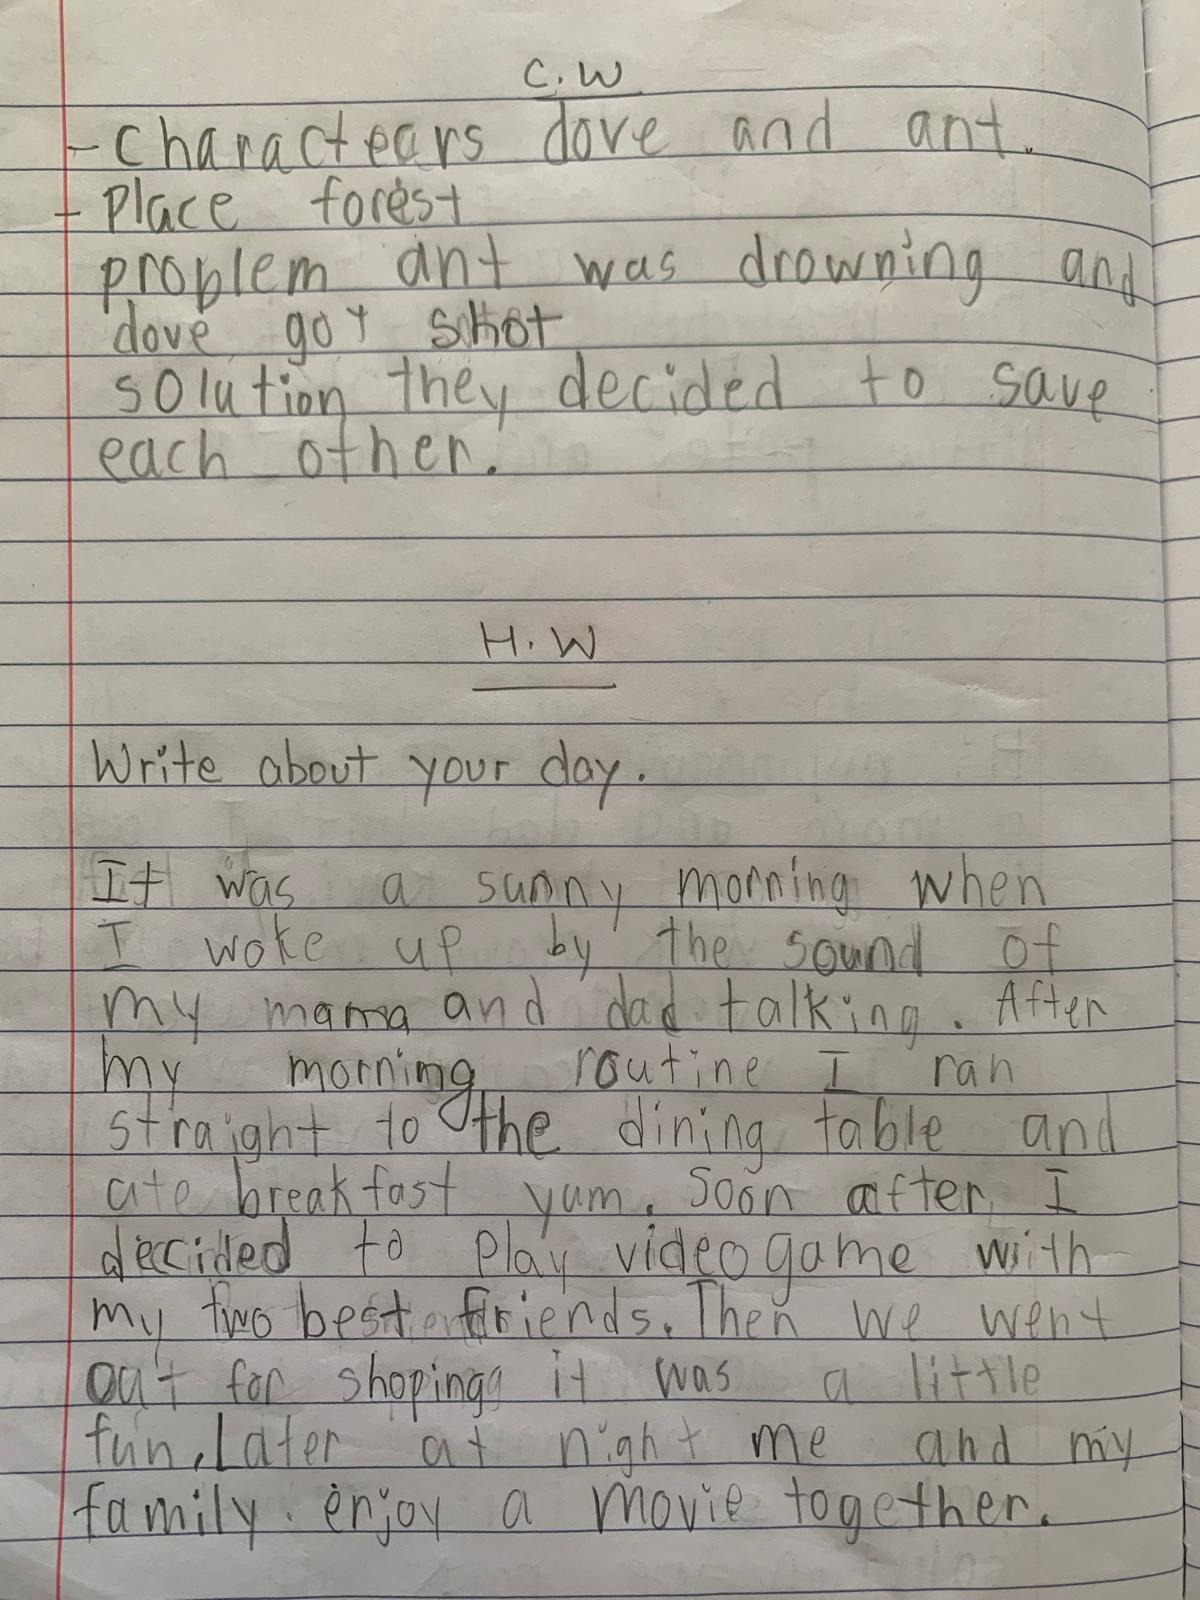 C.W
- Charactears dove and ant.
- Place forest
problem ant was drowning and
dove got shot
solution they decided to save
each other.
H.W
Write about your day.
It was a sunny morning when
I woke up by the sound of
my mama and dad talking. After
my morning routine I ran
straight to the dining table and
ate breakfast yum. Soon after, I
decided to play videogame with
my two best friends. Then we went
out for shoping it was a little
fun. Later at night me and my
family enjoy a movie together.